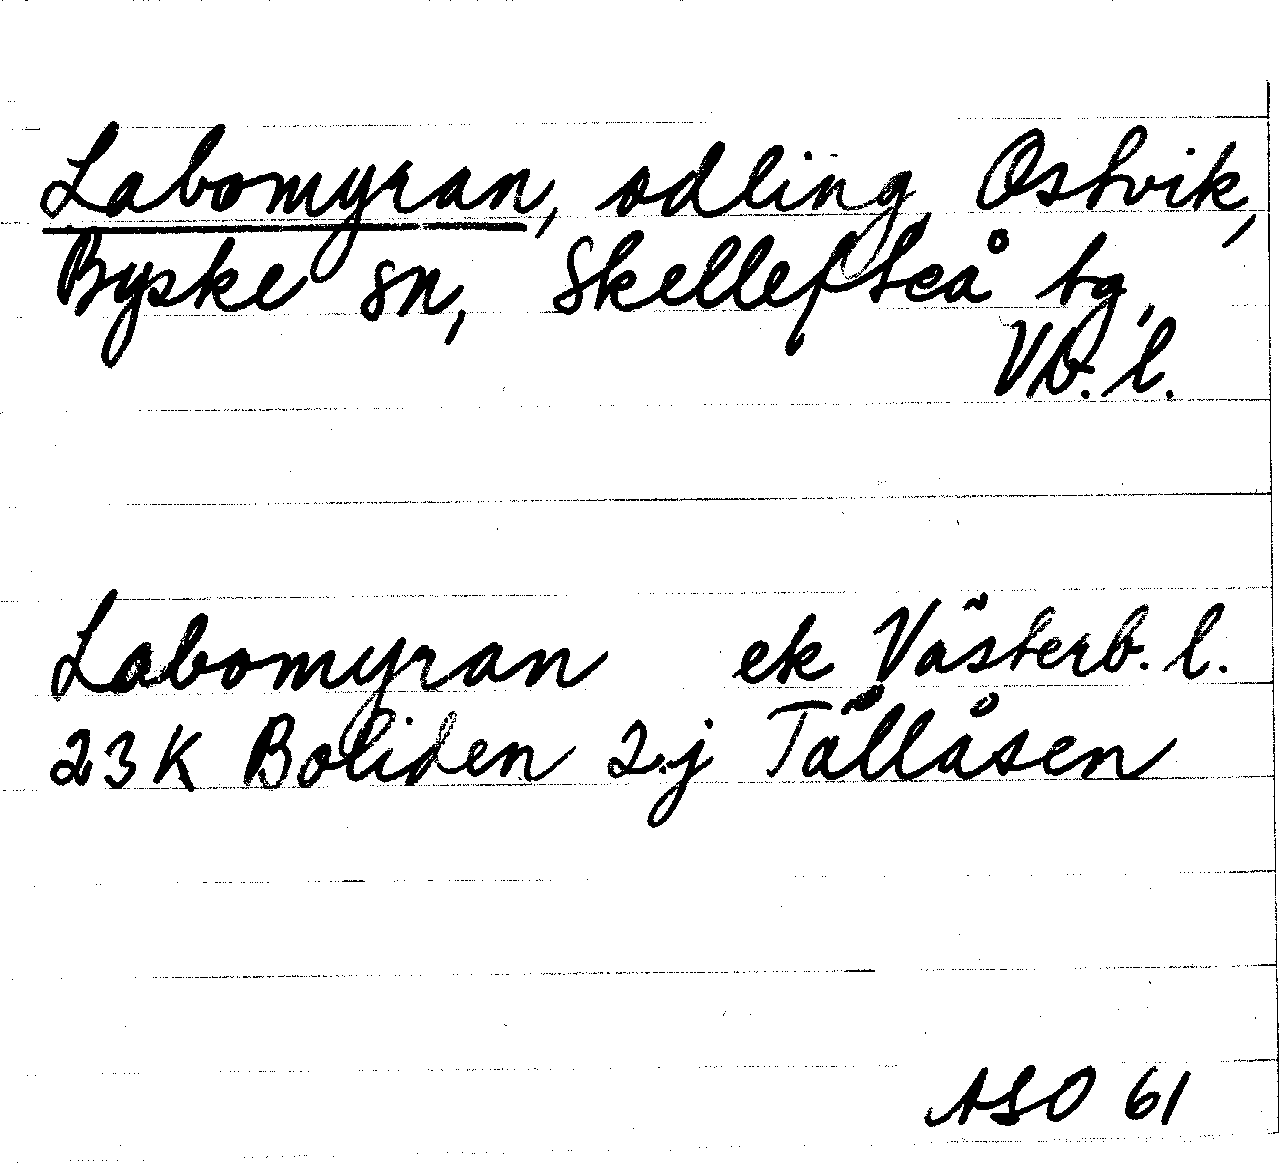 Labomyran, odling, Ostvik,
Byske sn, Skellefteå tg,
Vb. l.
Labomyran ek Västerb. l.
23K Boliden 2j Tällåsen
ASO 61